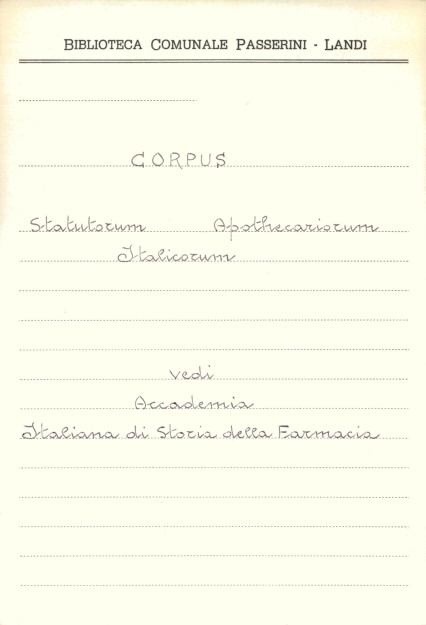 BIBLIOTECA COMUNALE PASSERINI - LANDI
CORPUS
Statutorum Apothecariorum
Italicorum
vedi
Accademia
Italiana di Storia della Farmacia